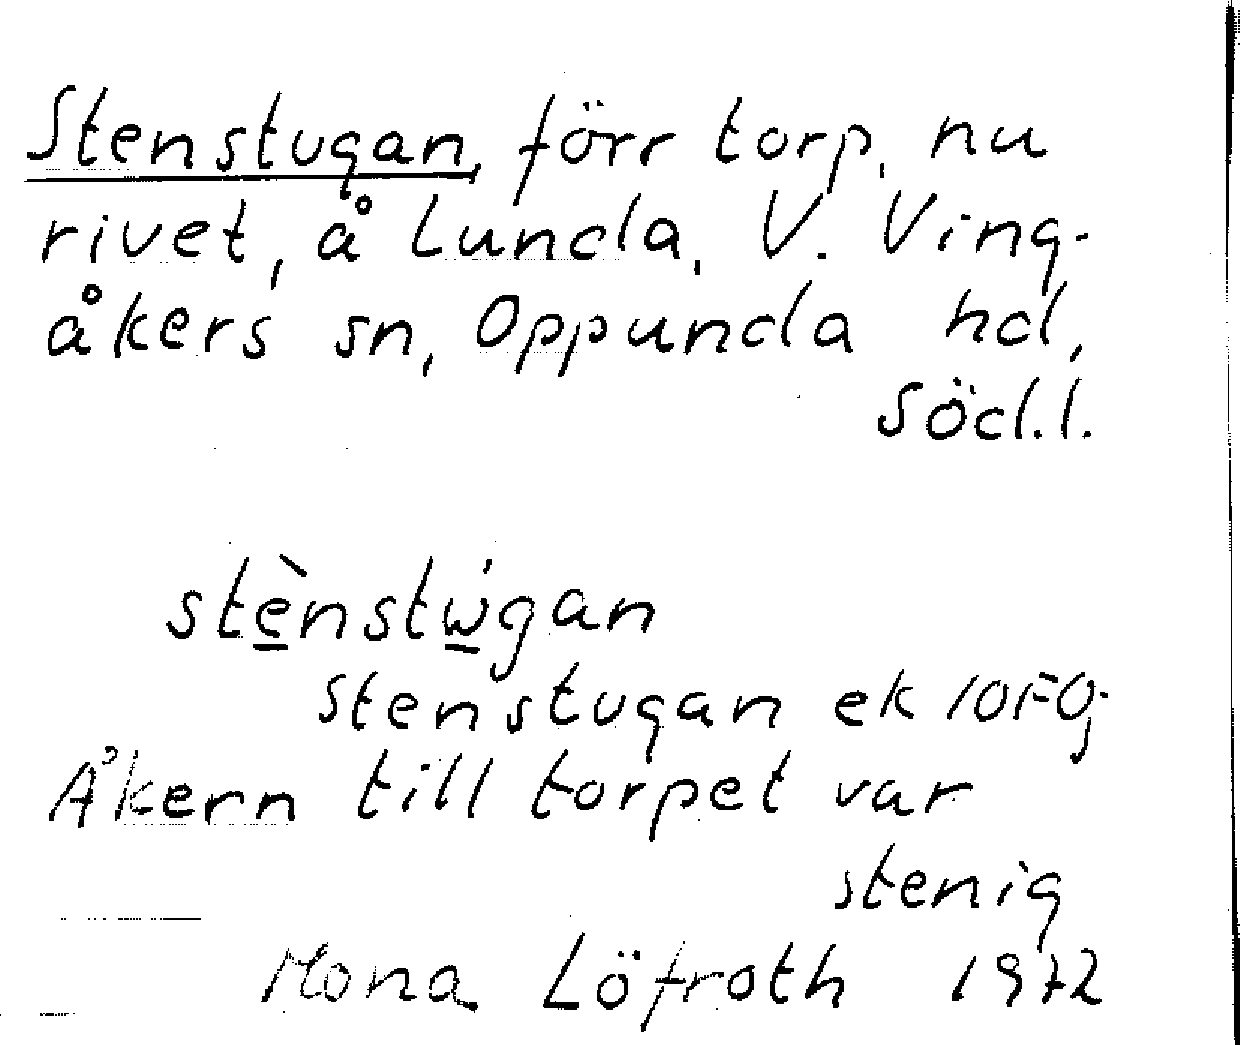 Stenstugan, förr torp, nu
rivet, å Lunda, V. Ving-
åkers sn, Oppunda hd,
Södl.l.
stè̲nstẃ̲gan
Stenstugan ek 10F0j
Åkern till torpet var
stenig
Mona Löfroth 1972